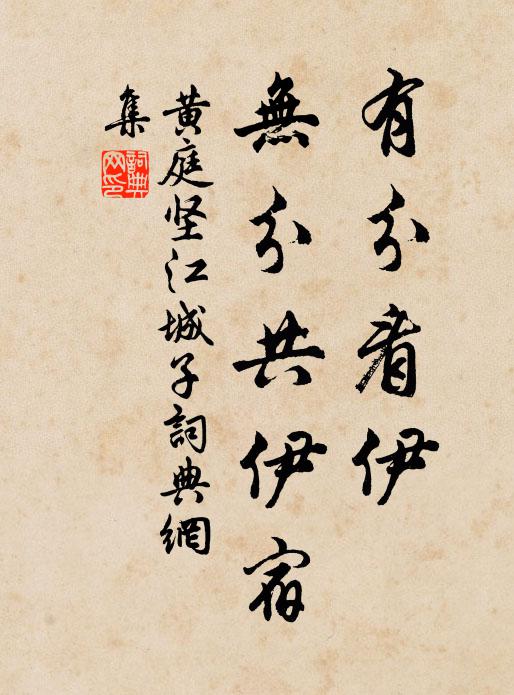 有分看伊
無分共伊宿
黄庭坚江城子詞典網
集
詞典網印